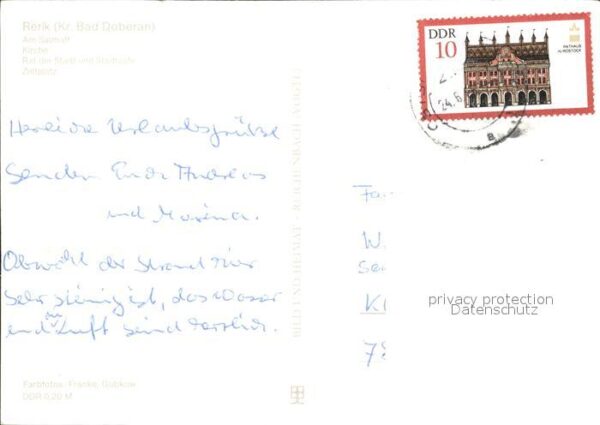 Rerik (Kr. Bad Doberan)
Am Salzhaff
Kirche
Rat der Stadt und Stadtseite
Zeltplatz
DDR
10
RATHAUS
IN ROSTOCK
24.6
Herzliche Urlaubsgrüße
senden Euch Andreas
und Marina.
Obwohl der Strand hier
sehr steinig ist, das Wasser
und Luft sind herrlich.
BILD UND HEIMAT REICHENBACH
Fa
W
K
privacy protection
Datenschutz
Farbfotos: Franke, Gubkow
DDR 0,20 M